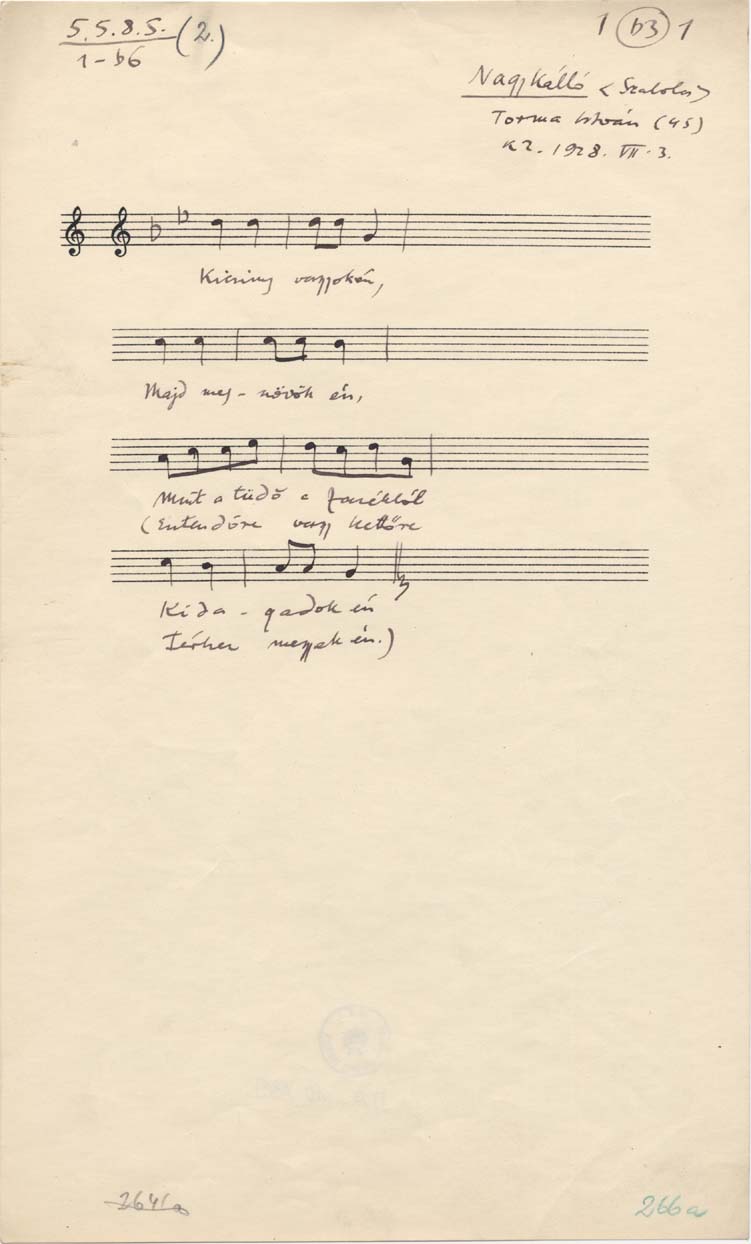 5. 5. 8. 5. (2.)
1 - b6
1 (b3) 1
Nagykálló (Szabolcs)
Torma István (45)
KZ. 1928. VII. 3.
Kicsiny vagyok én,
Majd meg - növök én,
Mint a tüdő a fazékból
(Esztendőre vagy kettőre
Kida - gadok én
Férhez megyek én.)
264/a
266a